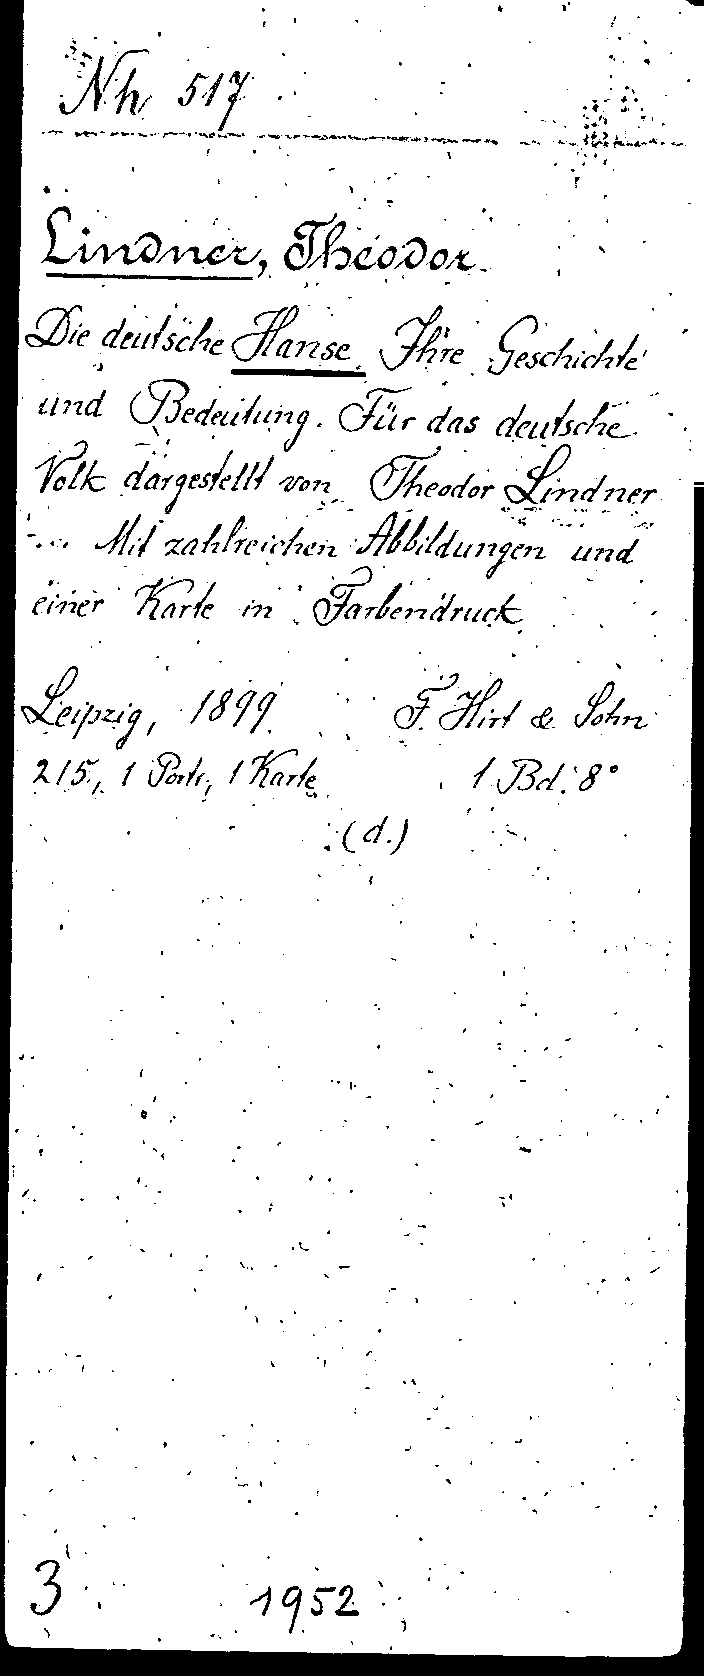 Nh 517
Lindner, Theodor
Die deutsche Hanse. Ihre Geschichte
und Bedeutung. Für das deutsche
Volk dargestellt von Theodor Lindner
... Mit zahlreichen Abbildungen und
einer Karte in Farbendruck
Leipzig, 1899 F. Hirt & Sohn
215, 1 Portr, 1 Karte 1 Bd. 8°
(d.)
3 1952